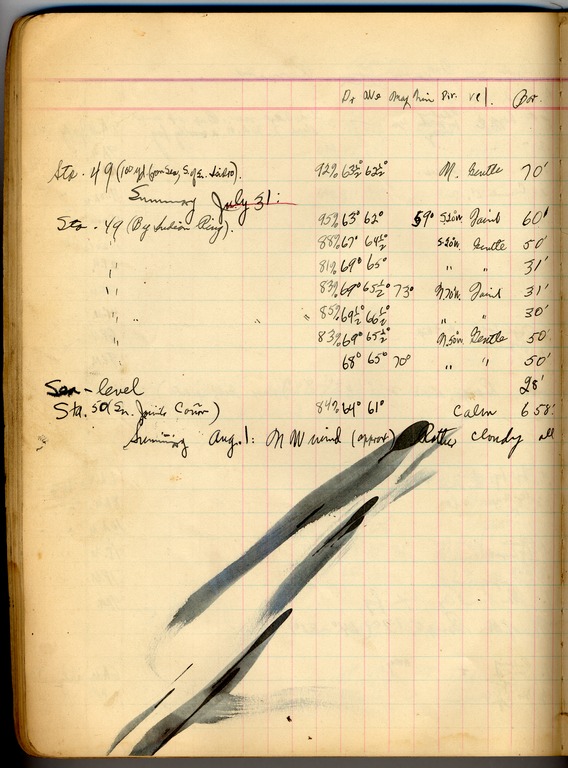 Dry Wet Max Min Dir. vel. Bar.
Sta. 49 (100 yd. from Sea, S. of Sn. Isidro). 92% 63½° 62½° N. Gentle 70'
Summary July 31:
Sta. 49 (By Indian Ring). 95% 63° 62° 59° S20W. Faint 60'
" 88% 67° 64½° S20W. Gentle 50'
" 81% 69° 65° " " 31'
" 83% 69° 65½° 73° N70W. Faint 31'
" 85% 69½° 66½° " " 30'
" 83% 69° 65½° N50W. Gentle 50'
68° 65° 70° " " 50'
Sea-level 28'
Sta. 50 (Sn. Jacinto Cañon) 84% 64° 61° Calm 658'
Summary Aug. 1: NW wind (approx) Rather cloudy all